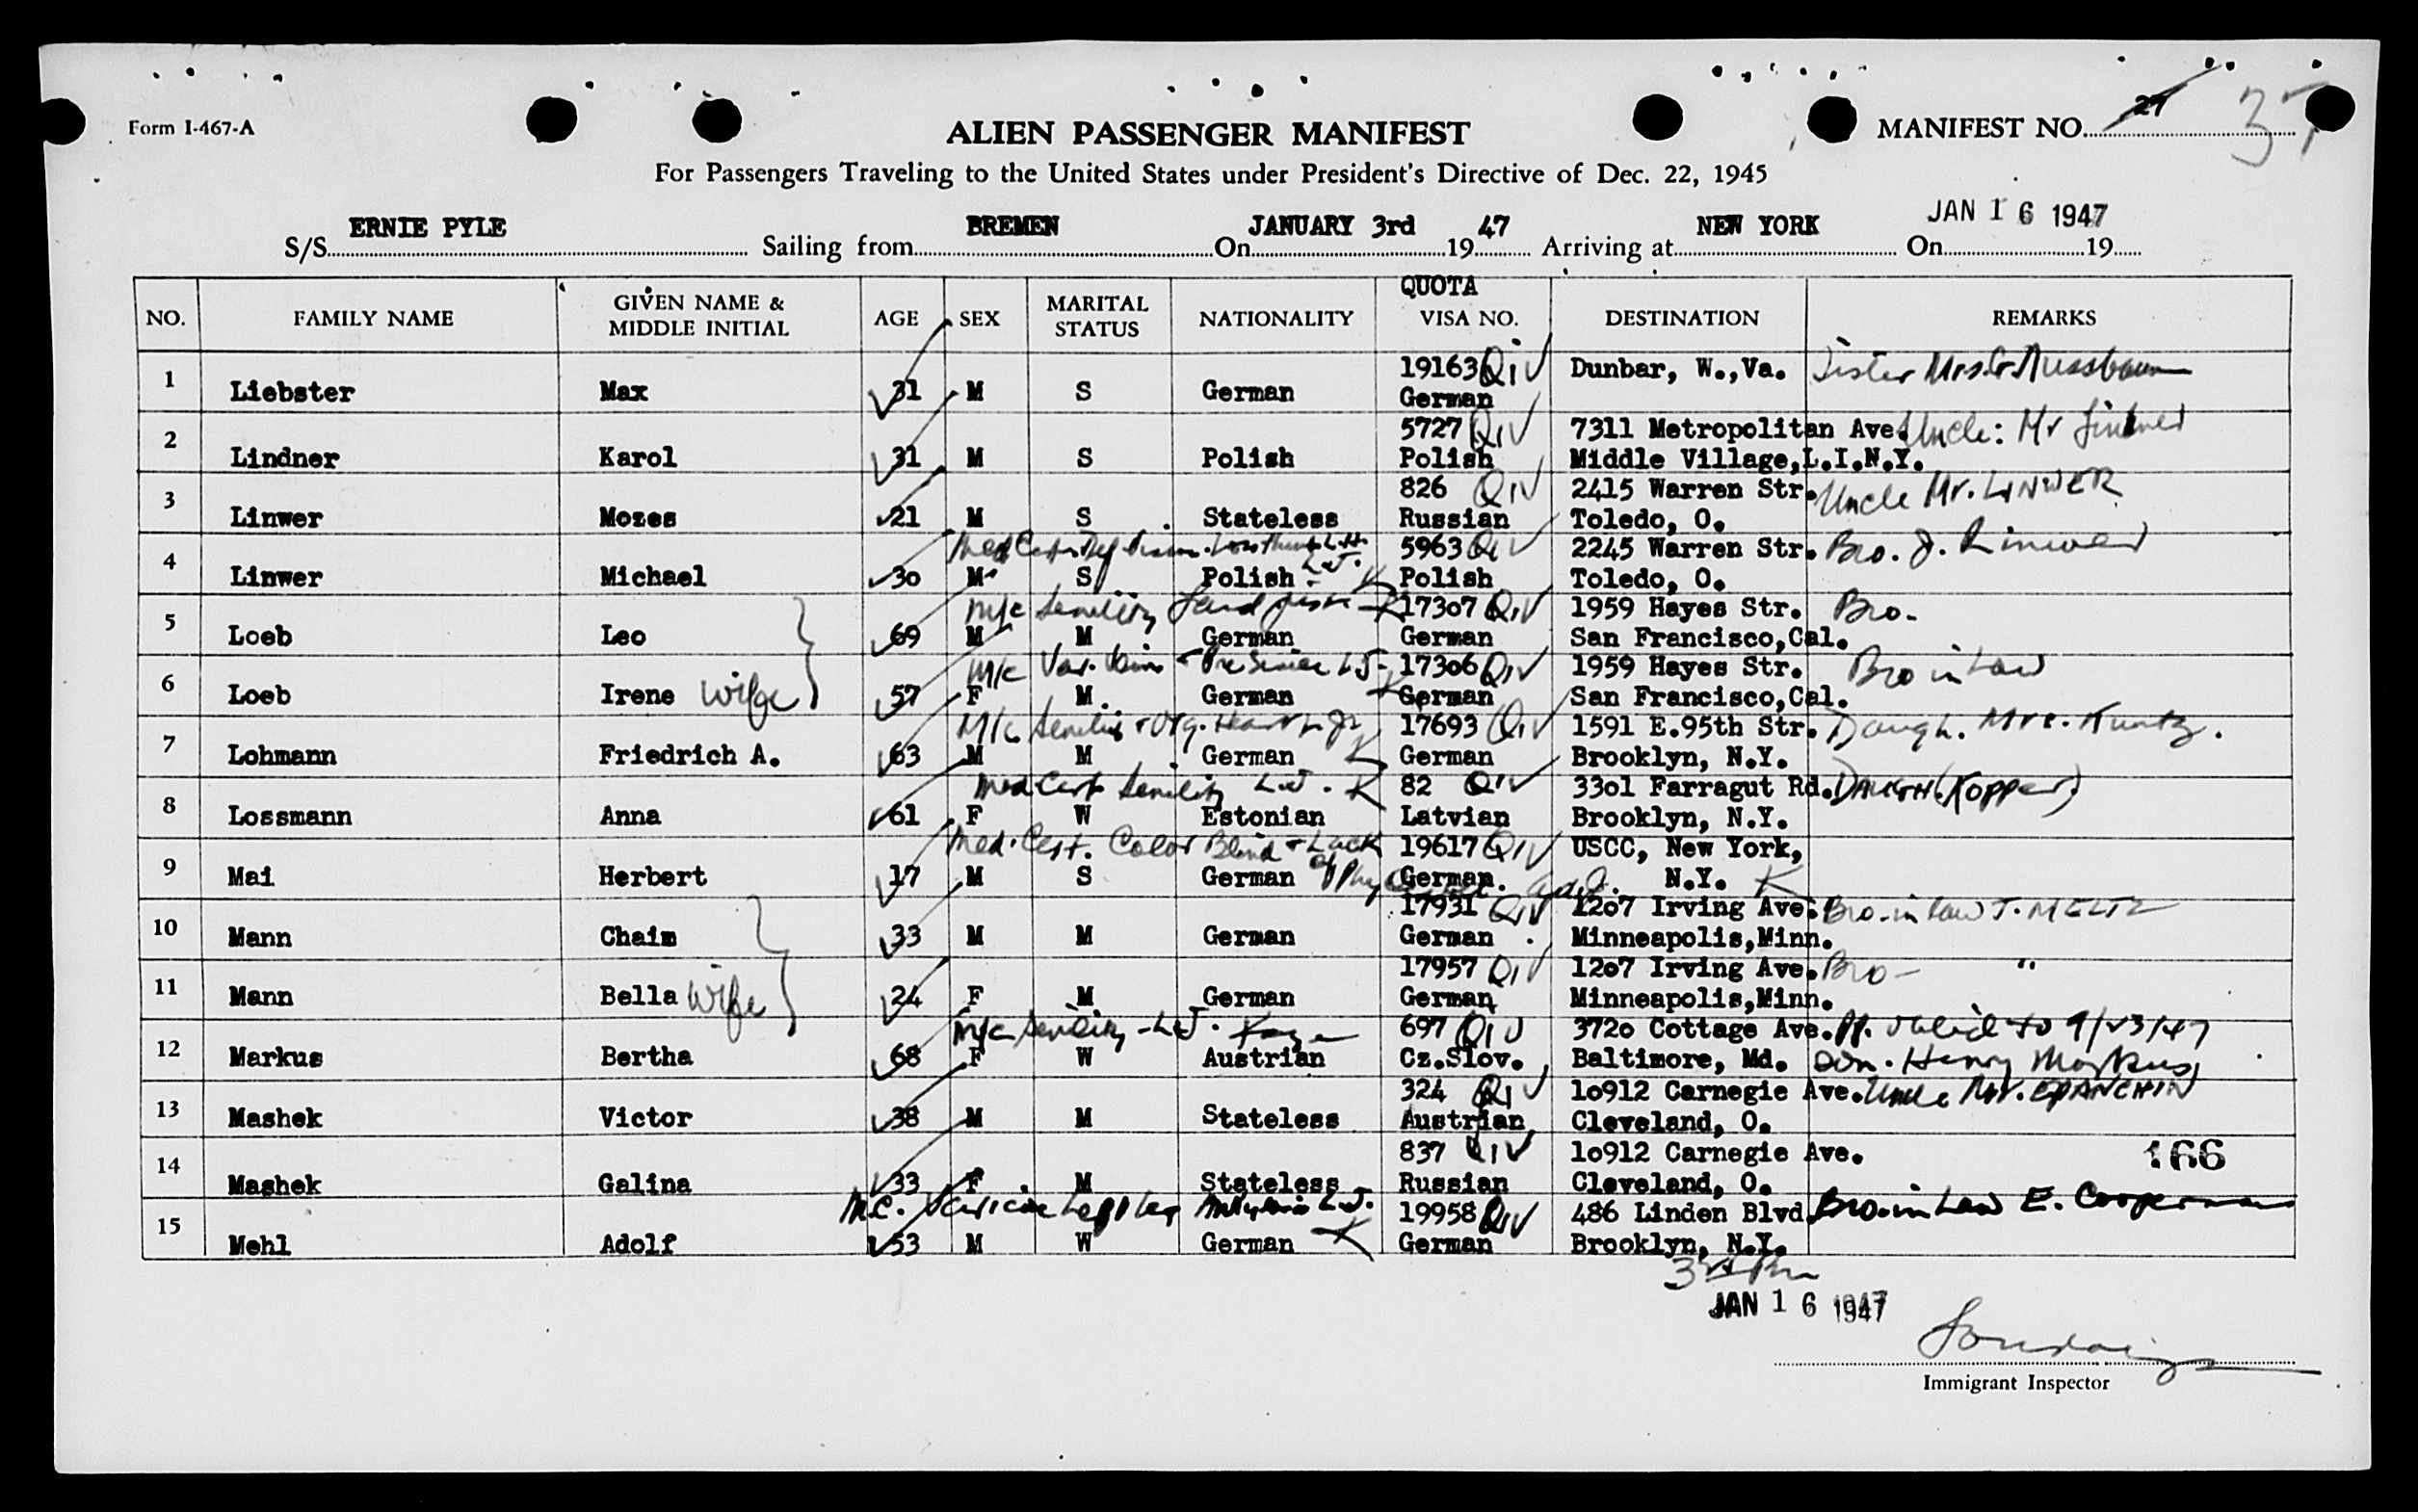 Form I-467-A
ALIEN PASSENGER MANIFEST
MANIFEST NO. 27 37
For Passengers Traveling to the United States under President's Directive of Dec. 22, 1945
S/S ERNIE PYLE Sailing from BREMEN On JANUARY 3rd 19 47 Arriving at NEW YORK On JAN 16 1947 19
NO. FAMILY NAME GIVEN NAME & MIDDLE INITIAL AGE SEX MARITAL STATUS NATIONALITY QUOTA VISA NO. DESTINATION REMARKS
1 Liebster Max 31 M S German 19163 QIV German Dunbar, W.,Va. Sister Mrs. Nussbaum
2 Lindner Karol 31 M S Polish 5727 QIV Polish 7311 Metropolitan Ave. Middle Village,L.I.N.Y. Uncle: Mr
3 Linwer Mozes 21 M S Stateless 826 QIV Russian 2415 Warren Str. Toledo, O. Uncle Mr. LINWER
4 Linwer Michael 30 M S Polish 5963 QIV Polish 2245 Warren Str. Toledo, O. Bro. J. Linwer
Med Cert
5 Loeb Leo 69 M M German 17307 QIV German 1959 Hayes Str. San Francisco,Cal. Bro.
M/c Senility
6 Loeb Irene wife 57 F M. German 17306 QIV German 1959 Hayes Str. San Francisco,Cal. Bro in Law
M/c Var. Veins
7 Lohmann Friedrich A. 63 M M German 17693 QIV German 1591 E.95th Str. Brooklyn, N.Y. Daugh. Mrs. Kuntz.
M/c Senility + Org. Heart
8 Lossmann Anna 61 F W Estonian 82 QIV Latvian 33o1 Farragut Rd. Brooklyn, N.Y. DAUGH (Kopper)
Med Cert Senility L.J. K
9 Mai Herbert 17 M S German 19617 QIV German USCC, New York, N.Y. K
Med. Cert. Color Blind + Lack of Phy
10 Mann Chaim 33 M M German 17931 QIV German 12o7 Irving Ave. Minneapolis,Minn. Bro. in Law J. MELTZ
11 Mann Bella Wife 24 F M German 17957 QIV German 12o7 Irving Ave. Minneapolis,Minn. Bro - "
12 Markus Bertha 68 F W Austrian 697 QIV Cz.Slov. 372o Cottage Ave. Baltimore, Md. PP. Valid to 9/23/47 Son. Henry Markus
M/c Senility - L.J.
13 Mashek Victor 38 M M Stateless 324 QIV Austrian 1o912 Carnegie Ave. Cleveland, O. Uncle Mr. EPANCHIN
14 Mashek Galina 33 F M Stateless 837 QIV Russian 1o912 Carnegie Ave. Cleveland, O.
166
15 Mehl Adolf 53 M W German K 19958 QIV German 486 Linden Blvd. Brooklyn, N.Y. Bro. in Law E. Cooperman
M.C.
JAN 16 1947
Immigrant Inspector